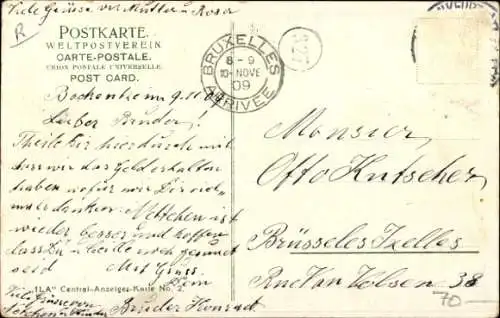 Viele Grüsse von Mutter u. Rosa
R
POSTKARTE.
WELTPOSTVEREIN
CARTE-POSTALE.
UNION POSTALE UNIVERSELLE.
POST CARD.
BRUXELLES
8 - 9
10-NOVE
09
ARRIVEE
Bockenheim 9.11.09
Lieber Bruder!
Theile Dir hierdurch mit
dass wir das Geld erhalten
haben wofür wir Dir
danken. Mettchen ist
wieder besser und hoffen
dass Du u. Cecile noch gesund
seid
Mit Gruss
Dein
Bruder Konrad
"ILA" Central-Anzeiger-Karte No. 2.
Viele Grüsse von
Monsieur,
Otto Kutscher,
Brüsseles Ixelles
Rue Van Volsem 38
70